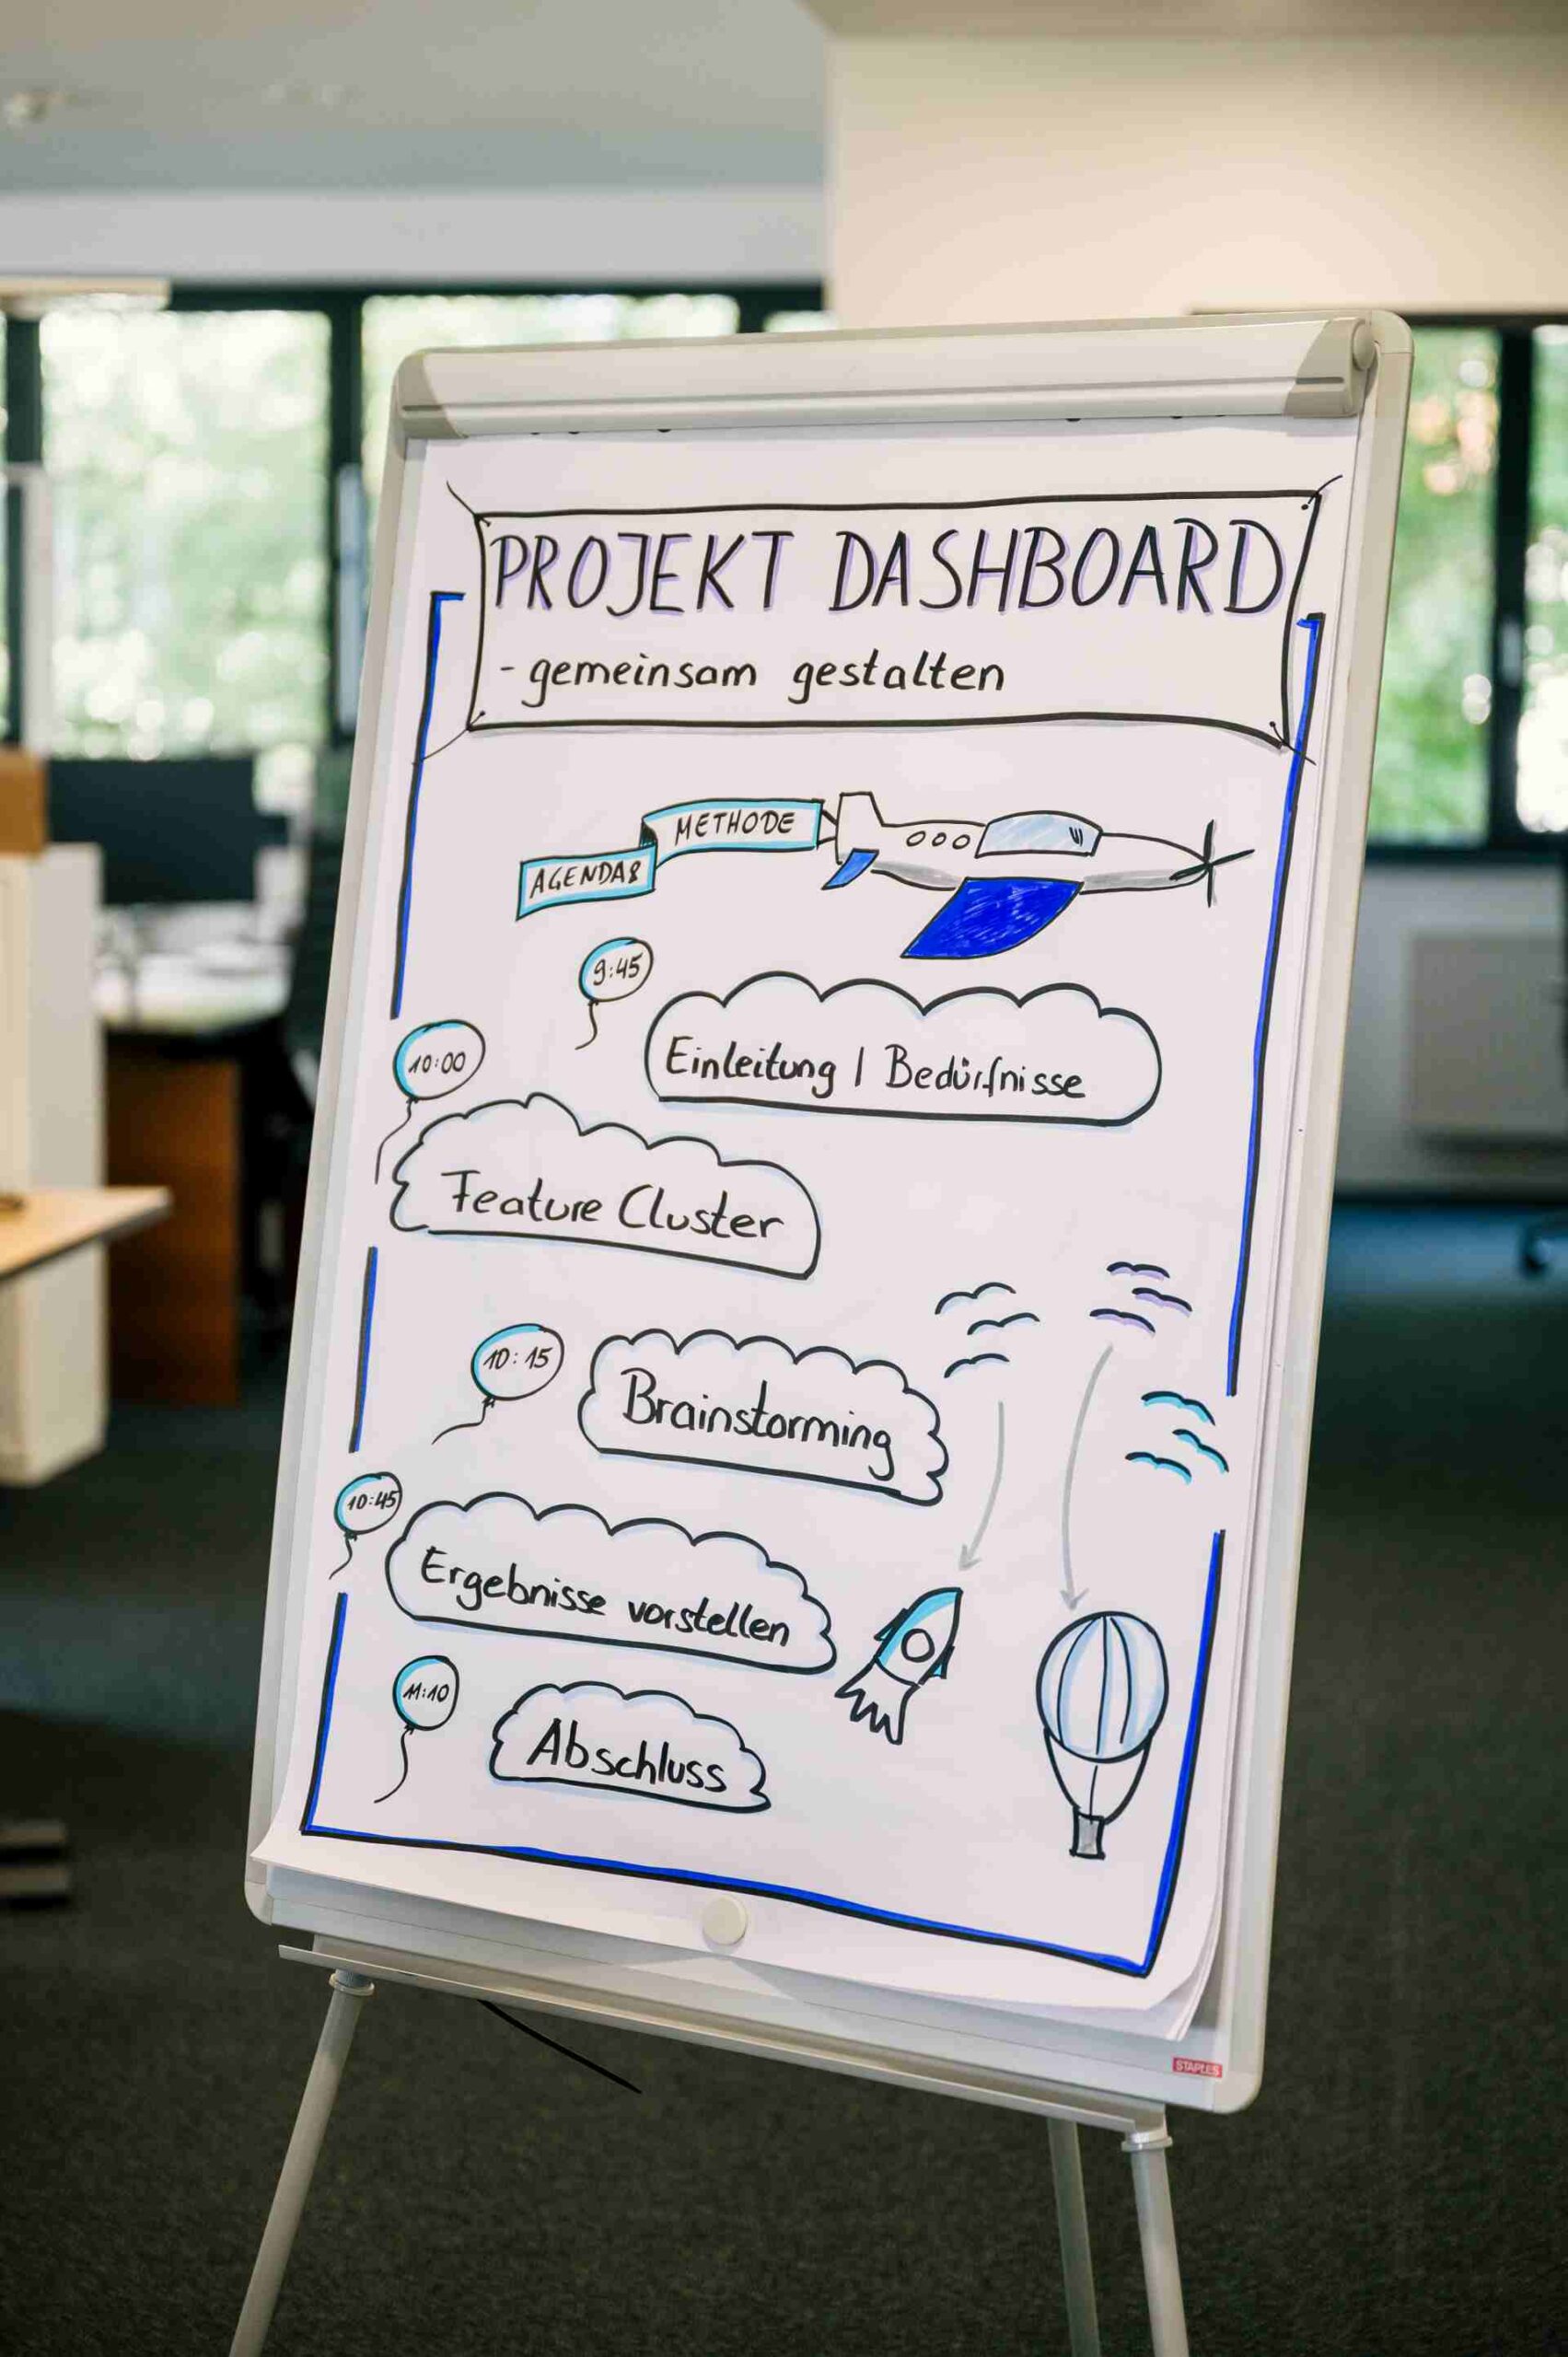 PROJEKT DASHBOARD
- gemeinsam gestalten
AGENDA &
METHODE
9:45
Einleitung | Bedürfnisse
10:00
Feature Cluster
10:15
Brainstorming
10:45
Ergebnisse vorstellen
11:10
Abschluss
STAPLES